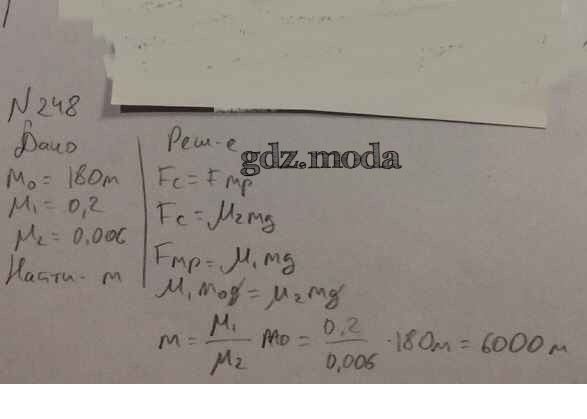 N248
Дано
m₀ = 180т
μ₁ = 0,2
μ₂ = 0,006
Найти - m
Реш-е
gdz.moda
Fc = Fтр
Fc = μ₂mg
Fтр = μ₁mg
μ₁m₀g = μ₂mg
m = μ₁/μ₂ m₀ = 0,2/0,006 · 180т = 6000т